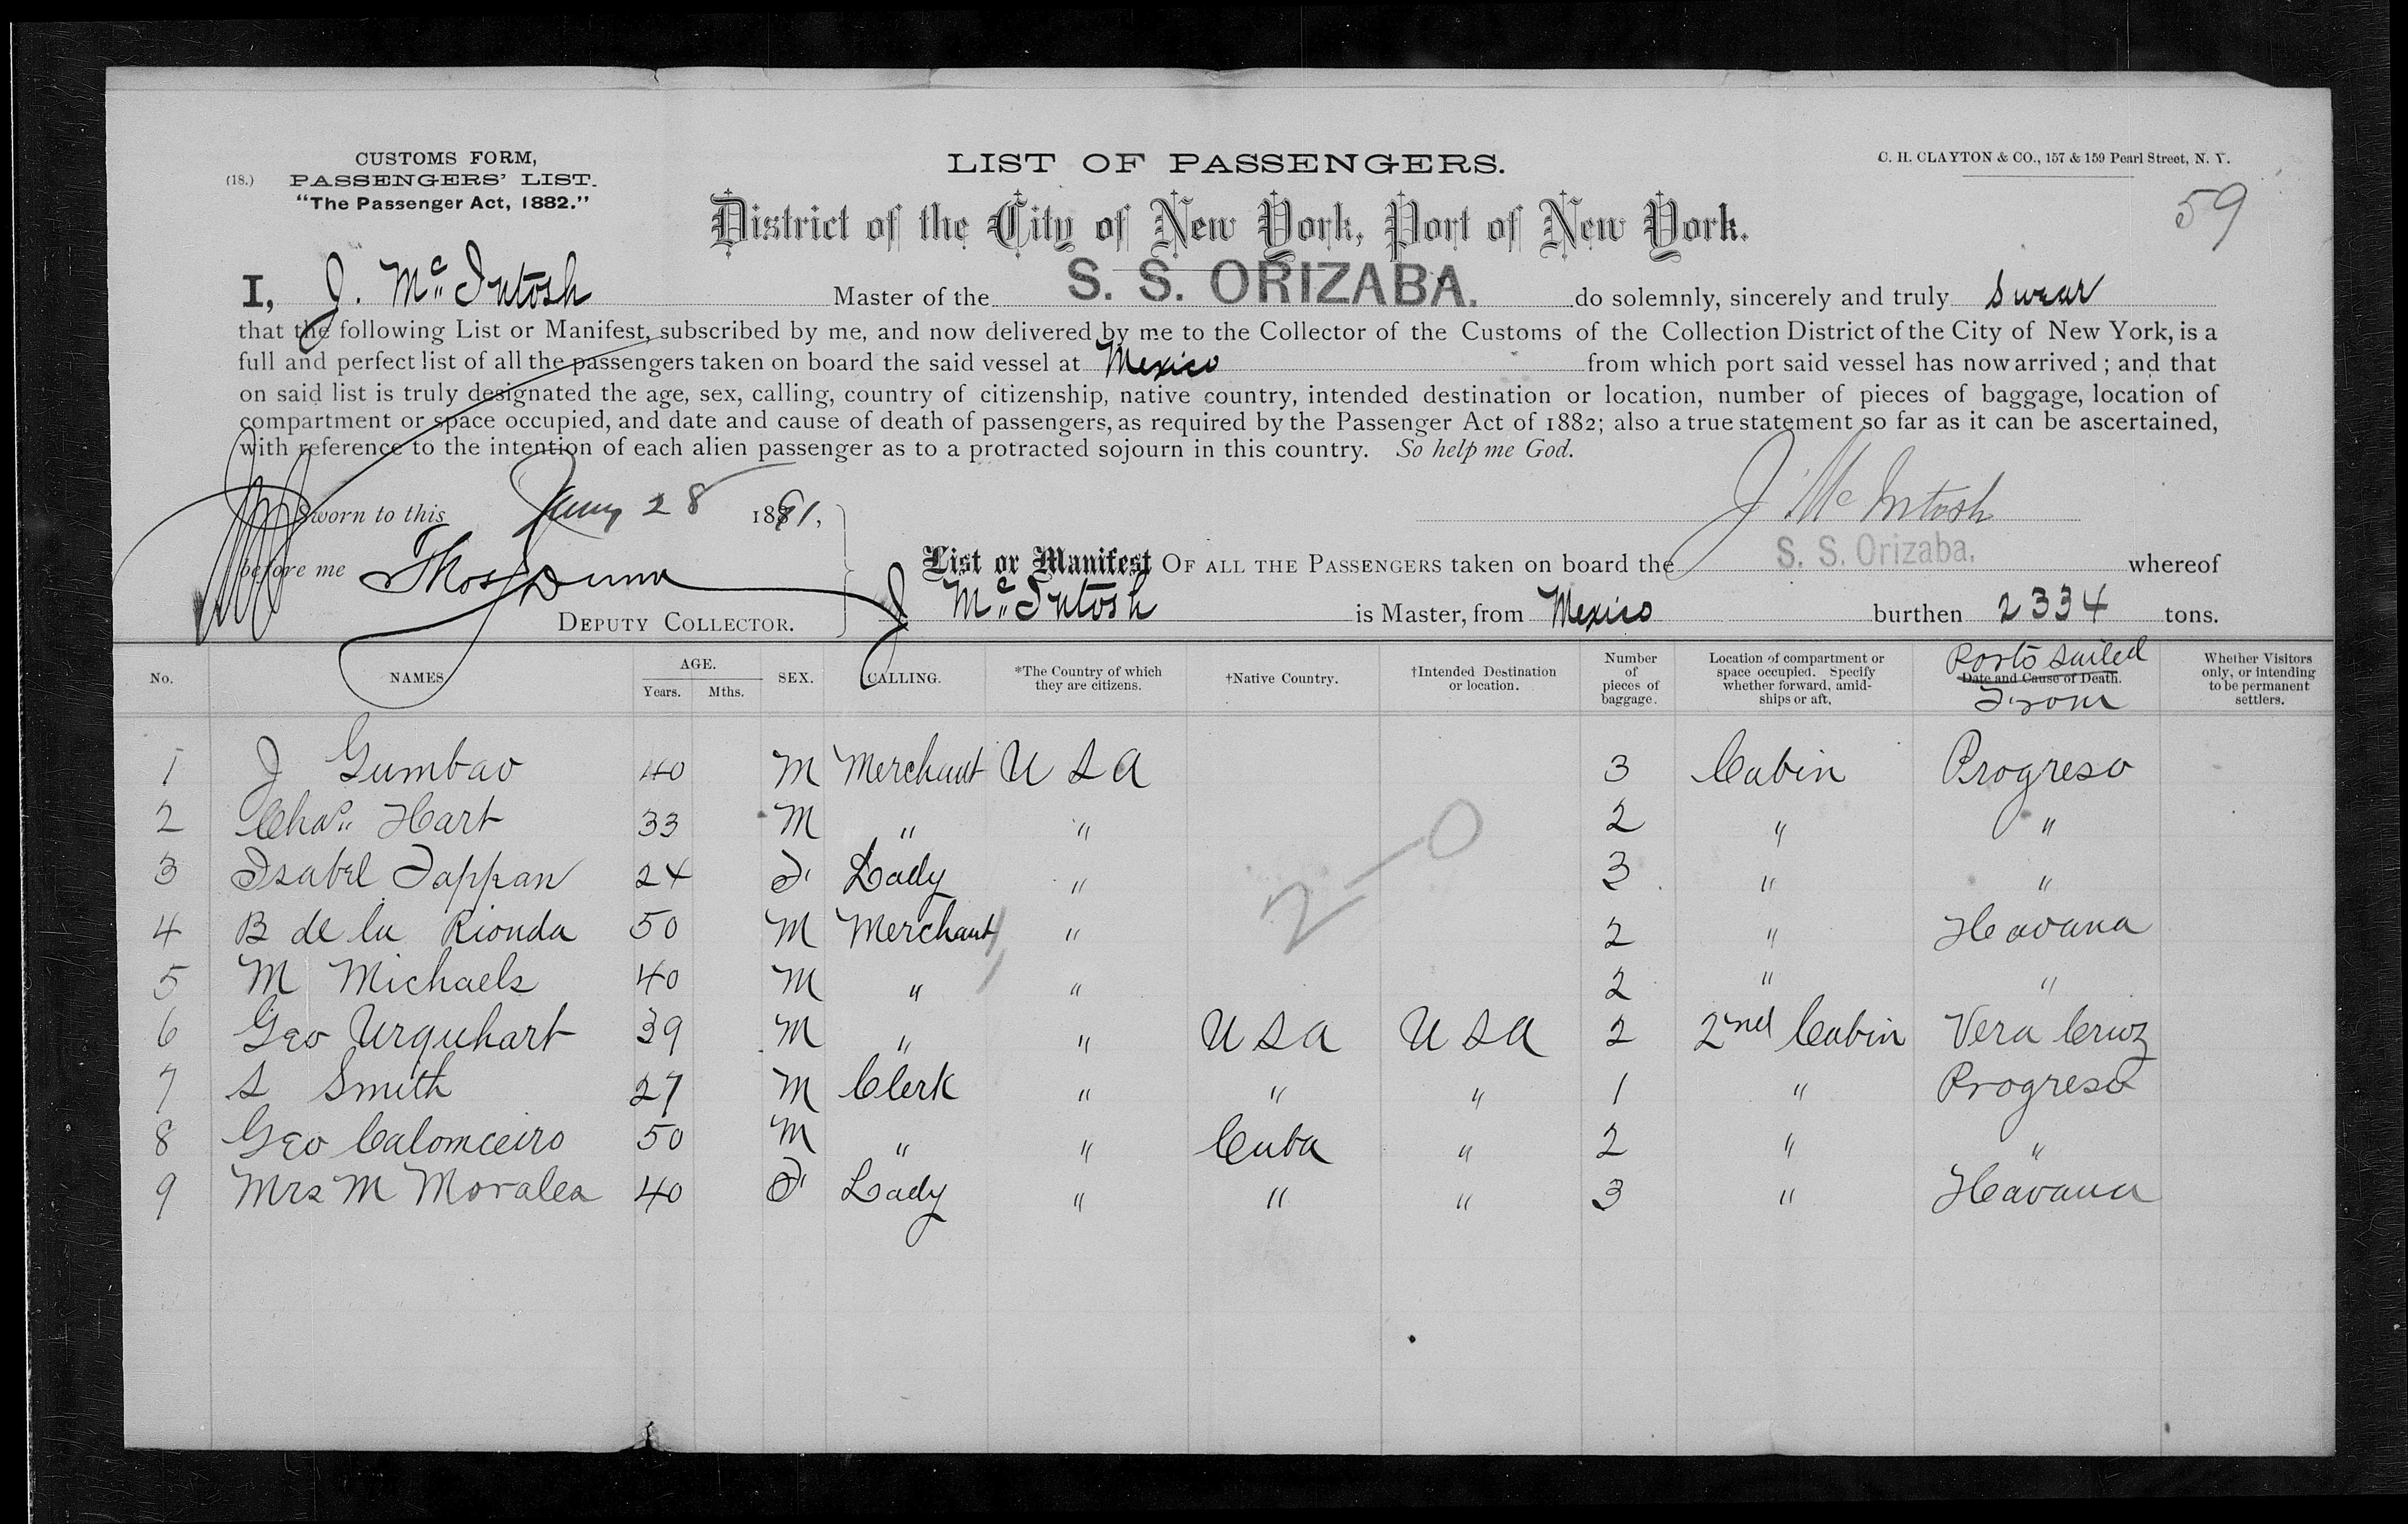 CUSTOMS FORM,
(18.) PASSENGERS' LIST.
"The Passenger Act, 1882."
LIST OF PASSENGERS.
C. H. CLAYTON & CO., 157 & 159 Pearl Street, N. Y.
59
District of the City of New York, Port of New York.
I, J. Mc Intosh Master of the S. S. ORIZABA. do solemnly, sincerely and truly swear
that the following List or Manifest, subscribed by me, and now delivered by me to the Collector of the Customs of the Collection District of the City of New York, is a
full and perfect list of all the passengers taken on board the said vessel at Mexico from which port said vessel has now arrived; and that
on said list is truly designated the age, sex, calling, country of citizenship, native country, intended destination or location, number of pieces of baggage, location of
compartment or space occupied, and date and cause of death of passengers, as required by the Passenger Act of 1882; also a true statement so far as it can be ascertained,
with reference to the intention of each alien passenger as to a protracted sojourn in this country. So help me God.
Sworn to this Jany 28 1891,
J Mc Intosh
before me Thos Dunn
DEPUTY COLLECTOR.
List or Manifest OF ALL THE PASSENGERS taken on board the S. S. Orizaba. whereof
J Mc Intosh is Master, from Mexico burthen 2334 tons.
No. NAMES. AGE. Years. Mths. SEX. CALLING. *The Country of which they are citizens. †Native Country. †Intended Destination or location. Number of pieces of baggage. Location of compartment or space occupied. Specify whether forward, amidships or aft. Ports sailed Date and Cause of Death. From Whether Visitors only, or intending to be permanent settlers.
1 J Gumbao 40 M Merchant U S A 3 Cabin Progreso
2 Chas. Hart 33 M " " 2 " "
3 Isabel Tappan 24 F Lady " 3 " "
4 B de la Rionda 50 M Merchant " 2 " Havana
5 M Michaels 40 M " " 2 " "
6 Geo Urquhart 39 M " " U S A U S A 2 2nd Cabin Vera Cruz
7 S Smith 27 M Clerk " " " 1 " Progreso
8 Geo 50 M " " Cuba " 2 " "
9 Mrs M Morales 40 F Lady " " " 3 " Havana
2-0